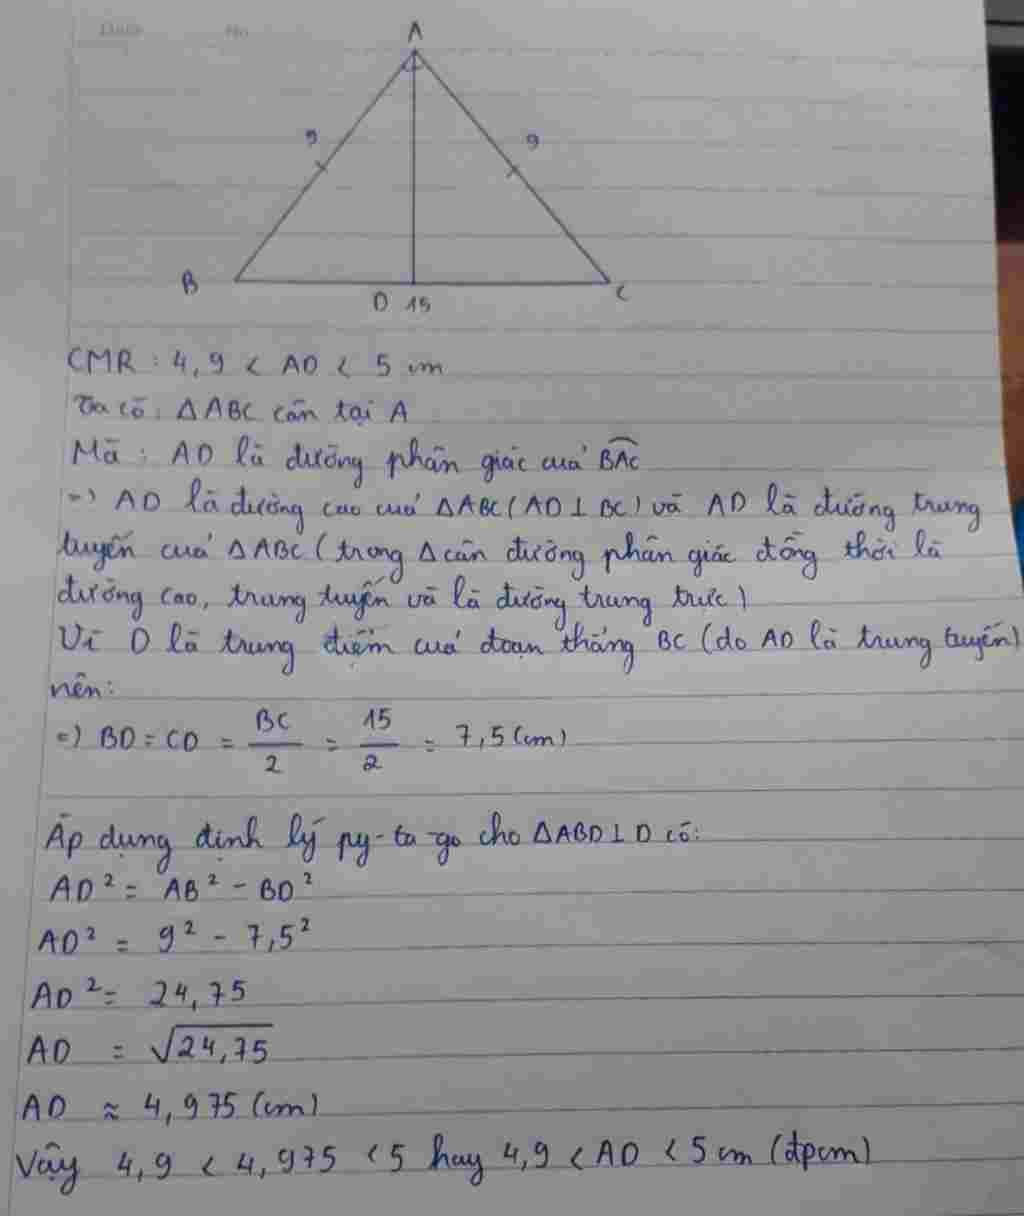 Date No
A
9 9
B D 15 C
CMR : 4,9 < AD < 5 cm
Ta có: ΔABC cân tại A
Mà : AD là đường phân giác của BAC
=) AD là đường cao của ΔABC (AD ⊥ BC) và AD là đường trung
tuyến của ΔABC (trong Δ cân đường phân giác đồng thời là
đường cao, trung tuyến và là đường trung trực)
Vì D là trung điểm của đoạn thẳng BC (do AD là trung tuyến)
nên:
=) BD = CD = BC/2 = 15/2 = 7,5 (cm)
Áp dụng định lý py-ta-go cho ΔABD ⊥ D có:
AD² = AB² - BD²
AD² = 9² - 7,5²
AD² = 24,75
AD = √24,75
AD ≈ 4,975 (cm)
Vậy 4,9 < 4,975 < 5 hay 4,9 < AD < 5 cm (đpcm)